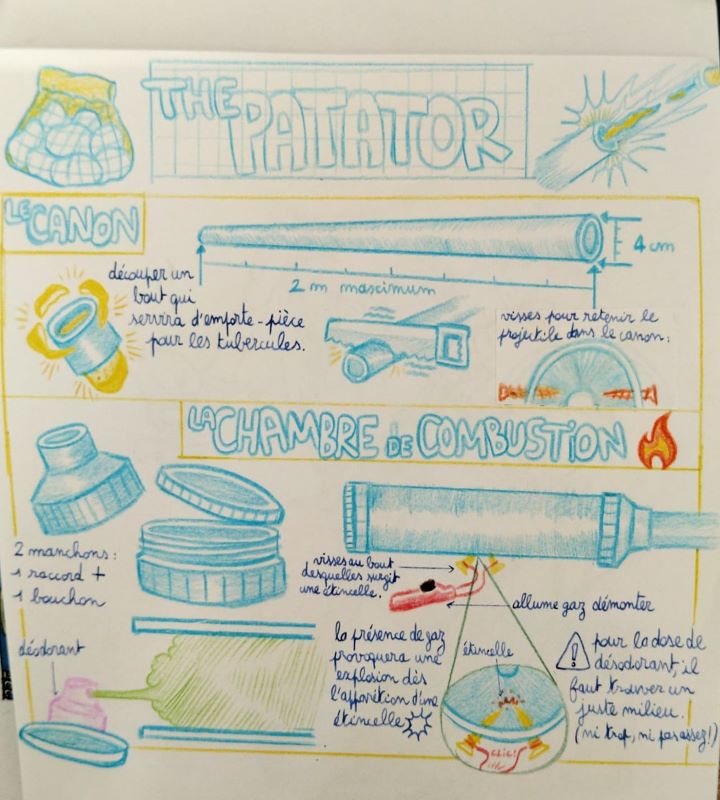 THE PATATOR
LE CANON
4 cm
2 m maximum
découper un
bout qui
servira d'emporte-pièce
pour les tubercules.
visses pour retenir le
projectile dans le canon:
LA CHAMBRE de COMBUSTION
2 manchons:
1 raccord +
1 bouchon
visses au bout
desquelles surgit
une étincelle.
allume gaz démonter
déodorant
la présence de gaz
provoquera une
explosion dès
l'apparition d'une
étincelle
étincelle
CLIC!
pour la dose de
désodorant, il
faut trouver un
juste milieu.
(ni trop, ni pas assez!)